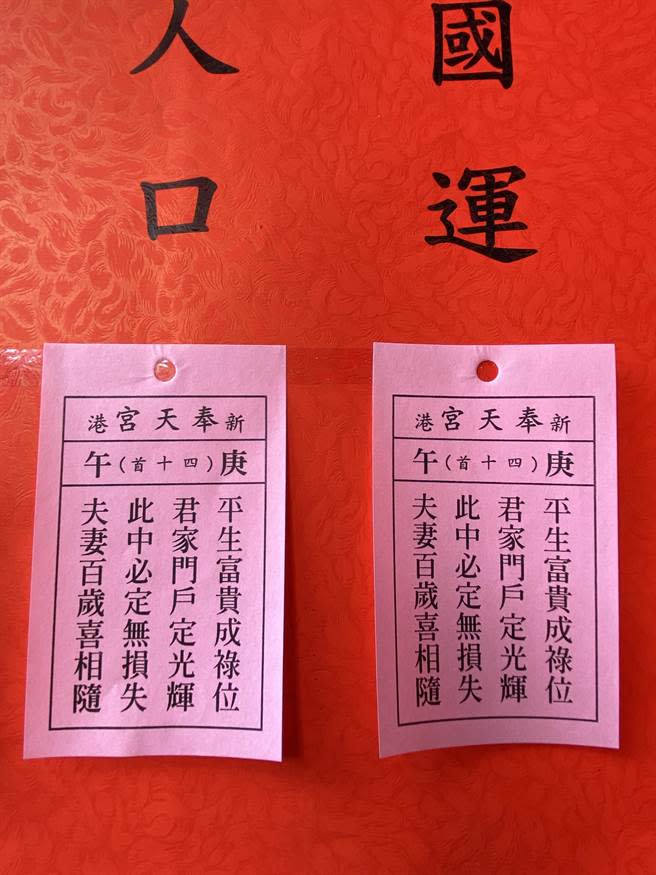 國運
人口
新奉天宮港
庚(四十首)午
平生富貴成祿位
君家門戶定光輝
此中必定無損失
夫妻百歲喜相隨
新奉天宮港
庚(四十首)午
平生富貴成祿位
君家門戶定光輝
此中必定無損失
夫妻百歲喜相隨